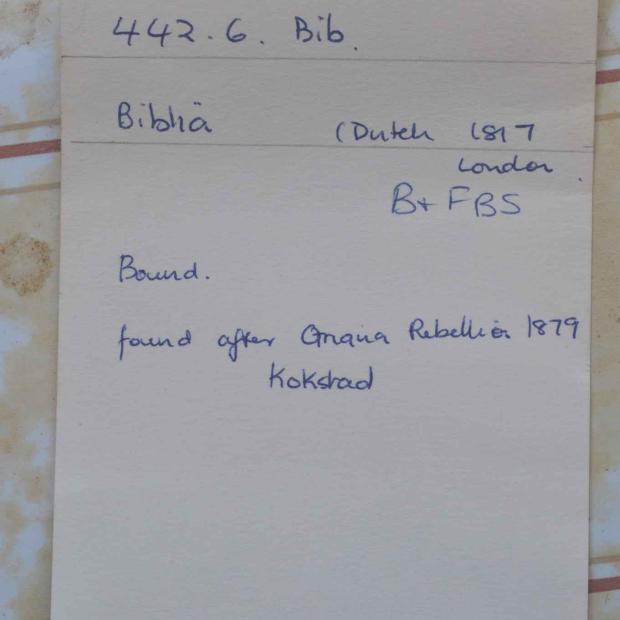 442.6. Bib.
Bibliä
(Dutch 1817
London.
B+FBS
Bound.
found after Griqua Rebellion 1879
Kokstad